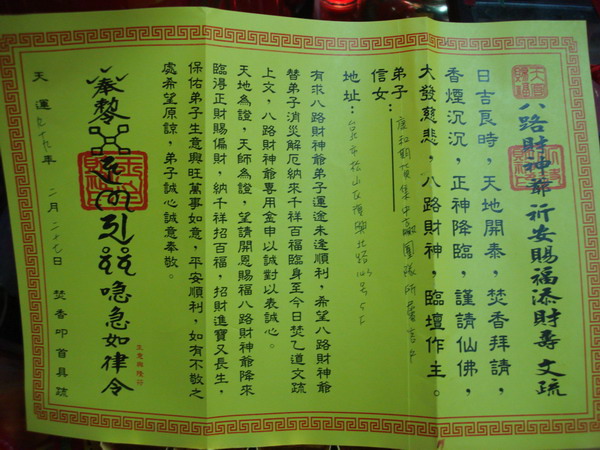 八路財神爺祈安賜福添財壽文疏
日吉良時，天地開泰，焚香拜請，
香煙沉沉，正神降臨，謹請仙佛，
大發慈悲，八路財神，臨壇作主。
弟子：
信女：
地址：台北市松山區復興北路
有求八路財神爺弟子運途未逢順利，希望八路財神爺
替弟子消災解厄納來千祥百福臨身至今日焚乙道文疏
上文，八路財神爺專用金申以誠對以表誠心。
天地為證，天師為證，望請開恩賜福八路財神爺降來
臨得正財賜偏財，納千祥招百福，招財進寶又長生，
保佑弟子生意興旺萬事如意，平安順利，如有不敬之
處希望原諒，弟子誠心誠意奉敬。
奉勅
引
唵急如律令
生意興隆符
天運九十九年二月二十七日焚香叩首具疏